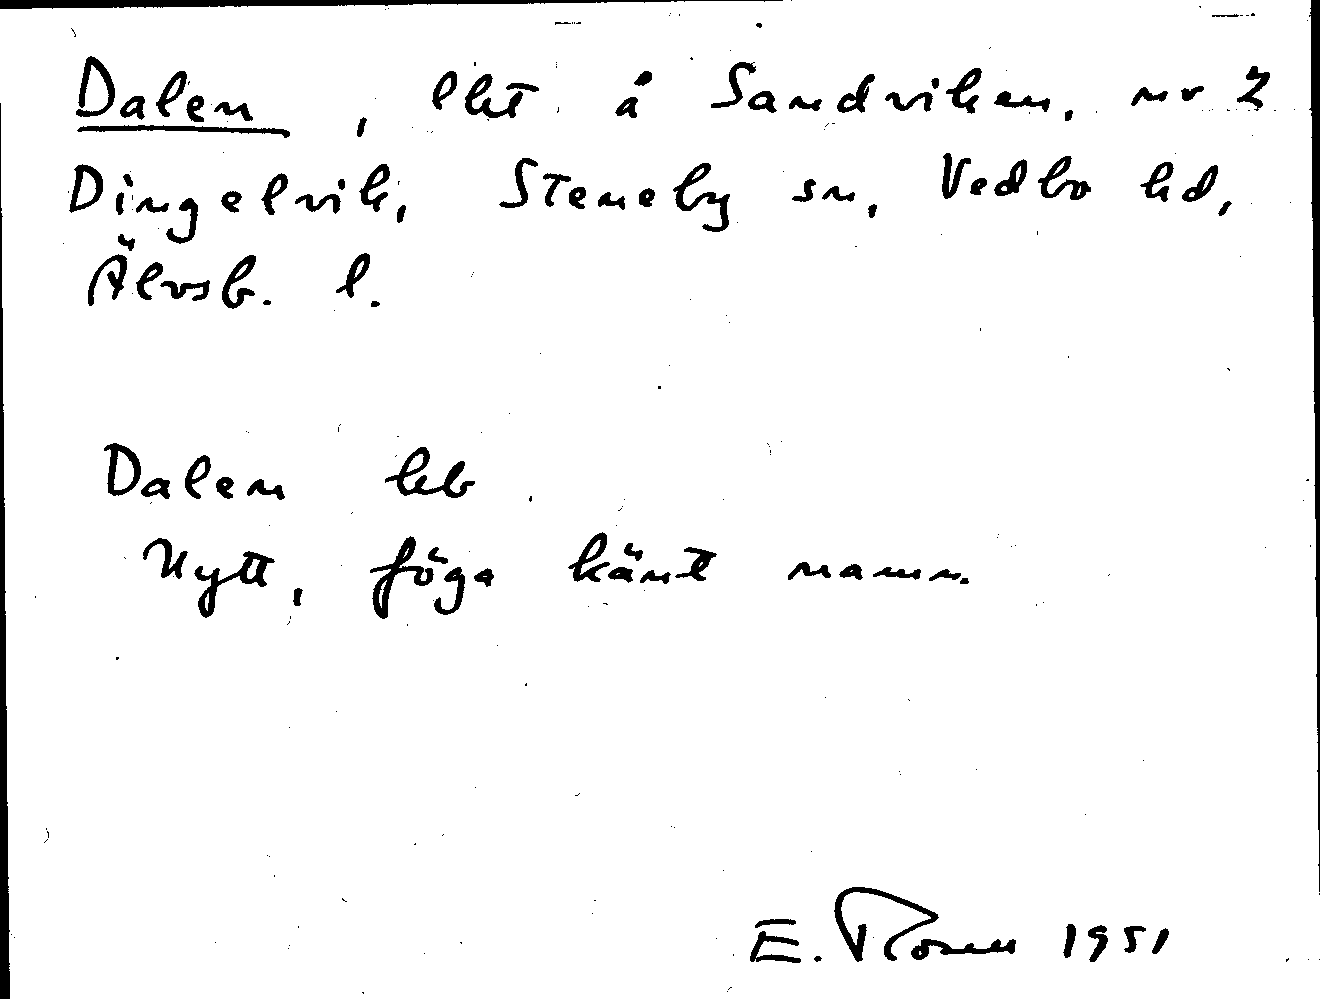 Dalen, lht å Sandviken, nr 2
Dingelvik, Steneby sn, Vedbo hd,
Älvsb. l.
Dalen leb
Nytt, föga känt namn.
E. Rosen 1951